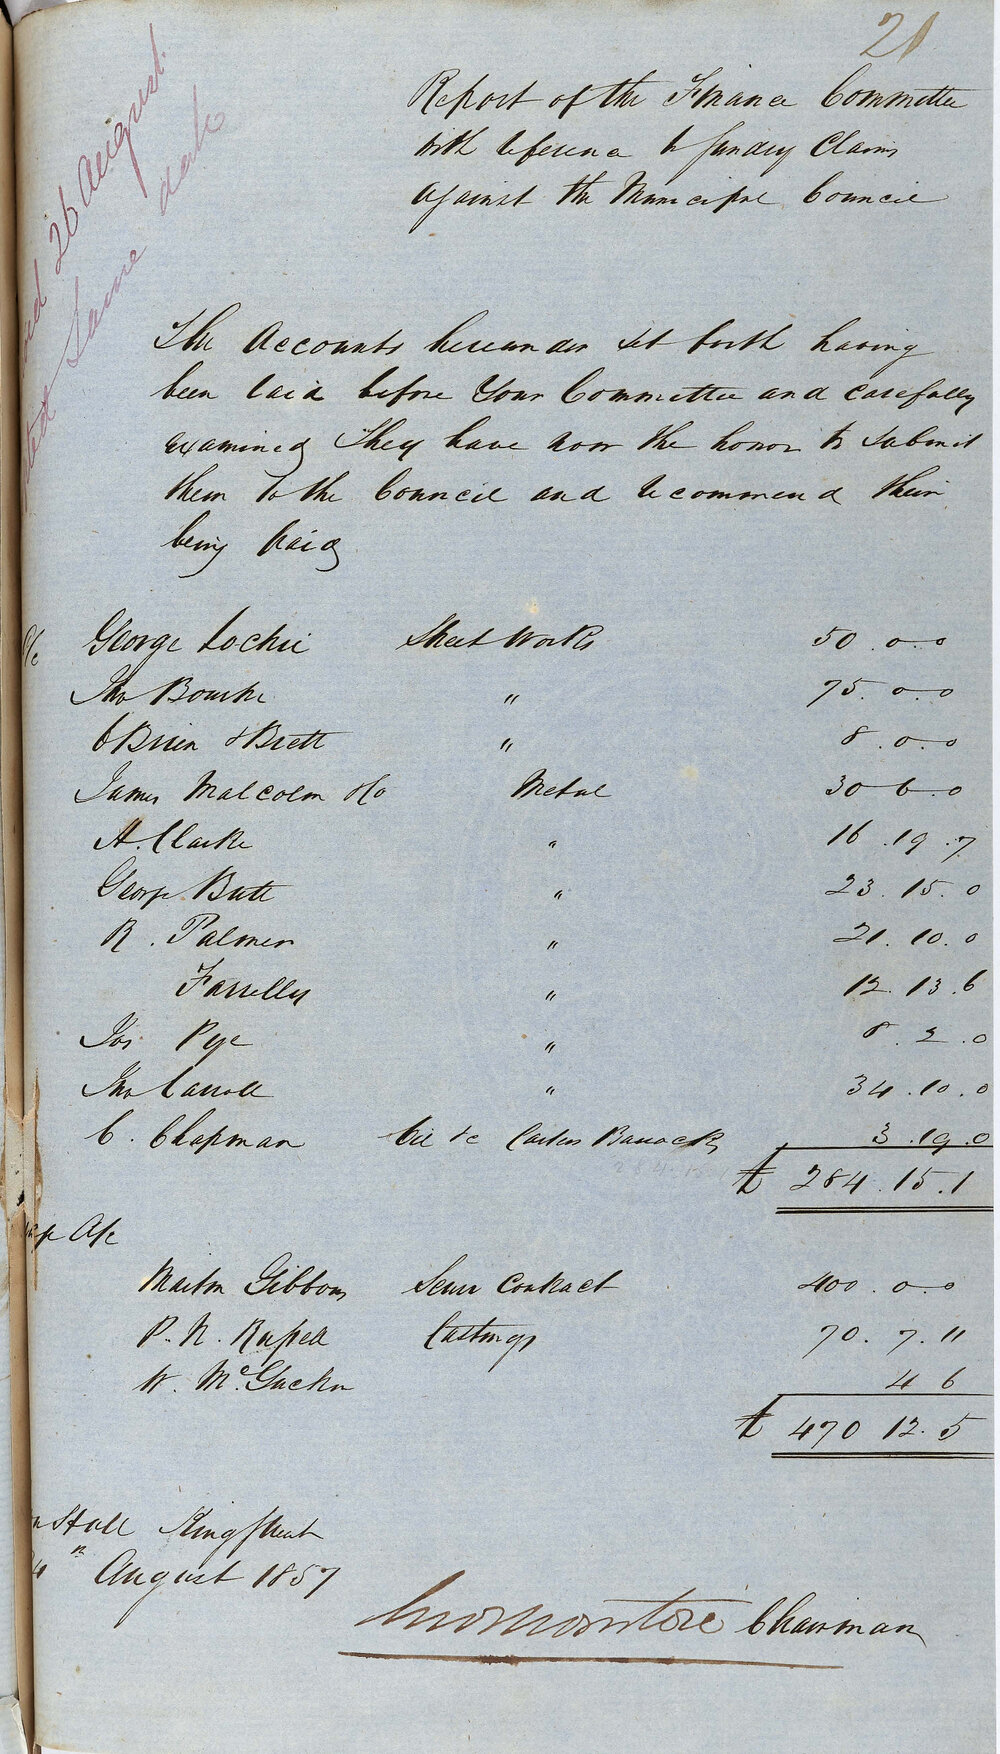 21
26 August.
Same date
Report of the Finance Committee
with reference to Sundry Claims
against the Municipal Council
The Accounts hereunder set forth having
been laid before Your Committee and carefully
examined They have now the honor to submit
them to the Council and recommend their
being paid
George Lochie Street Works 50.0.0
Thos Bourke " 75.0.0
O'Brien & Brett " 8.0.0
James Malcolm & Co Metal 30 6.0
H. Clarke " 16.19.7
George Butt " 23.15.0
R. Palmer " 21.10.0
Farrelly " 12.13.6
Jas Pye " 8.2.0
Thos Carroll " 34.10.0
C. Chapman Oil &c Carters Barracks 3.19.0
£ 284.15.1
A/c
Martin Gibbons Sewer Contract 400.0.0
P. N. Russell Castings 70.7.11
W. McGuckin 4 6
£ 470 12.5
Hall King Street
August 1857
Chairman